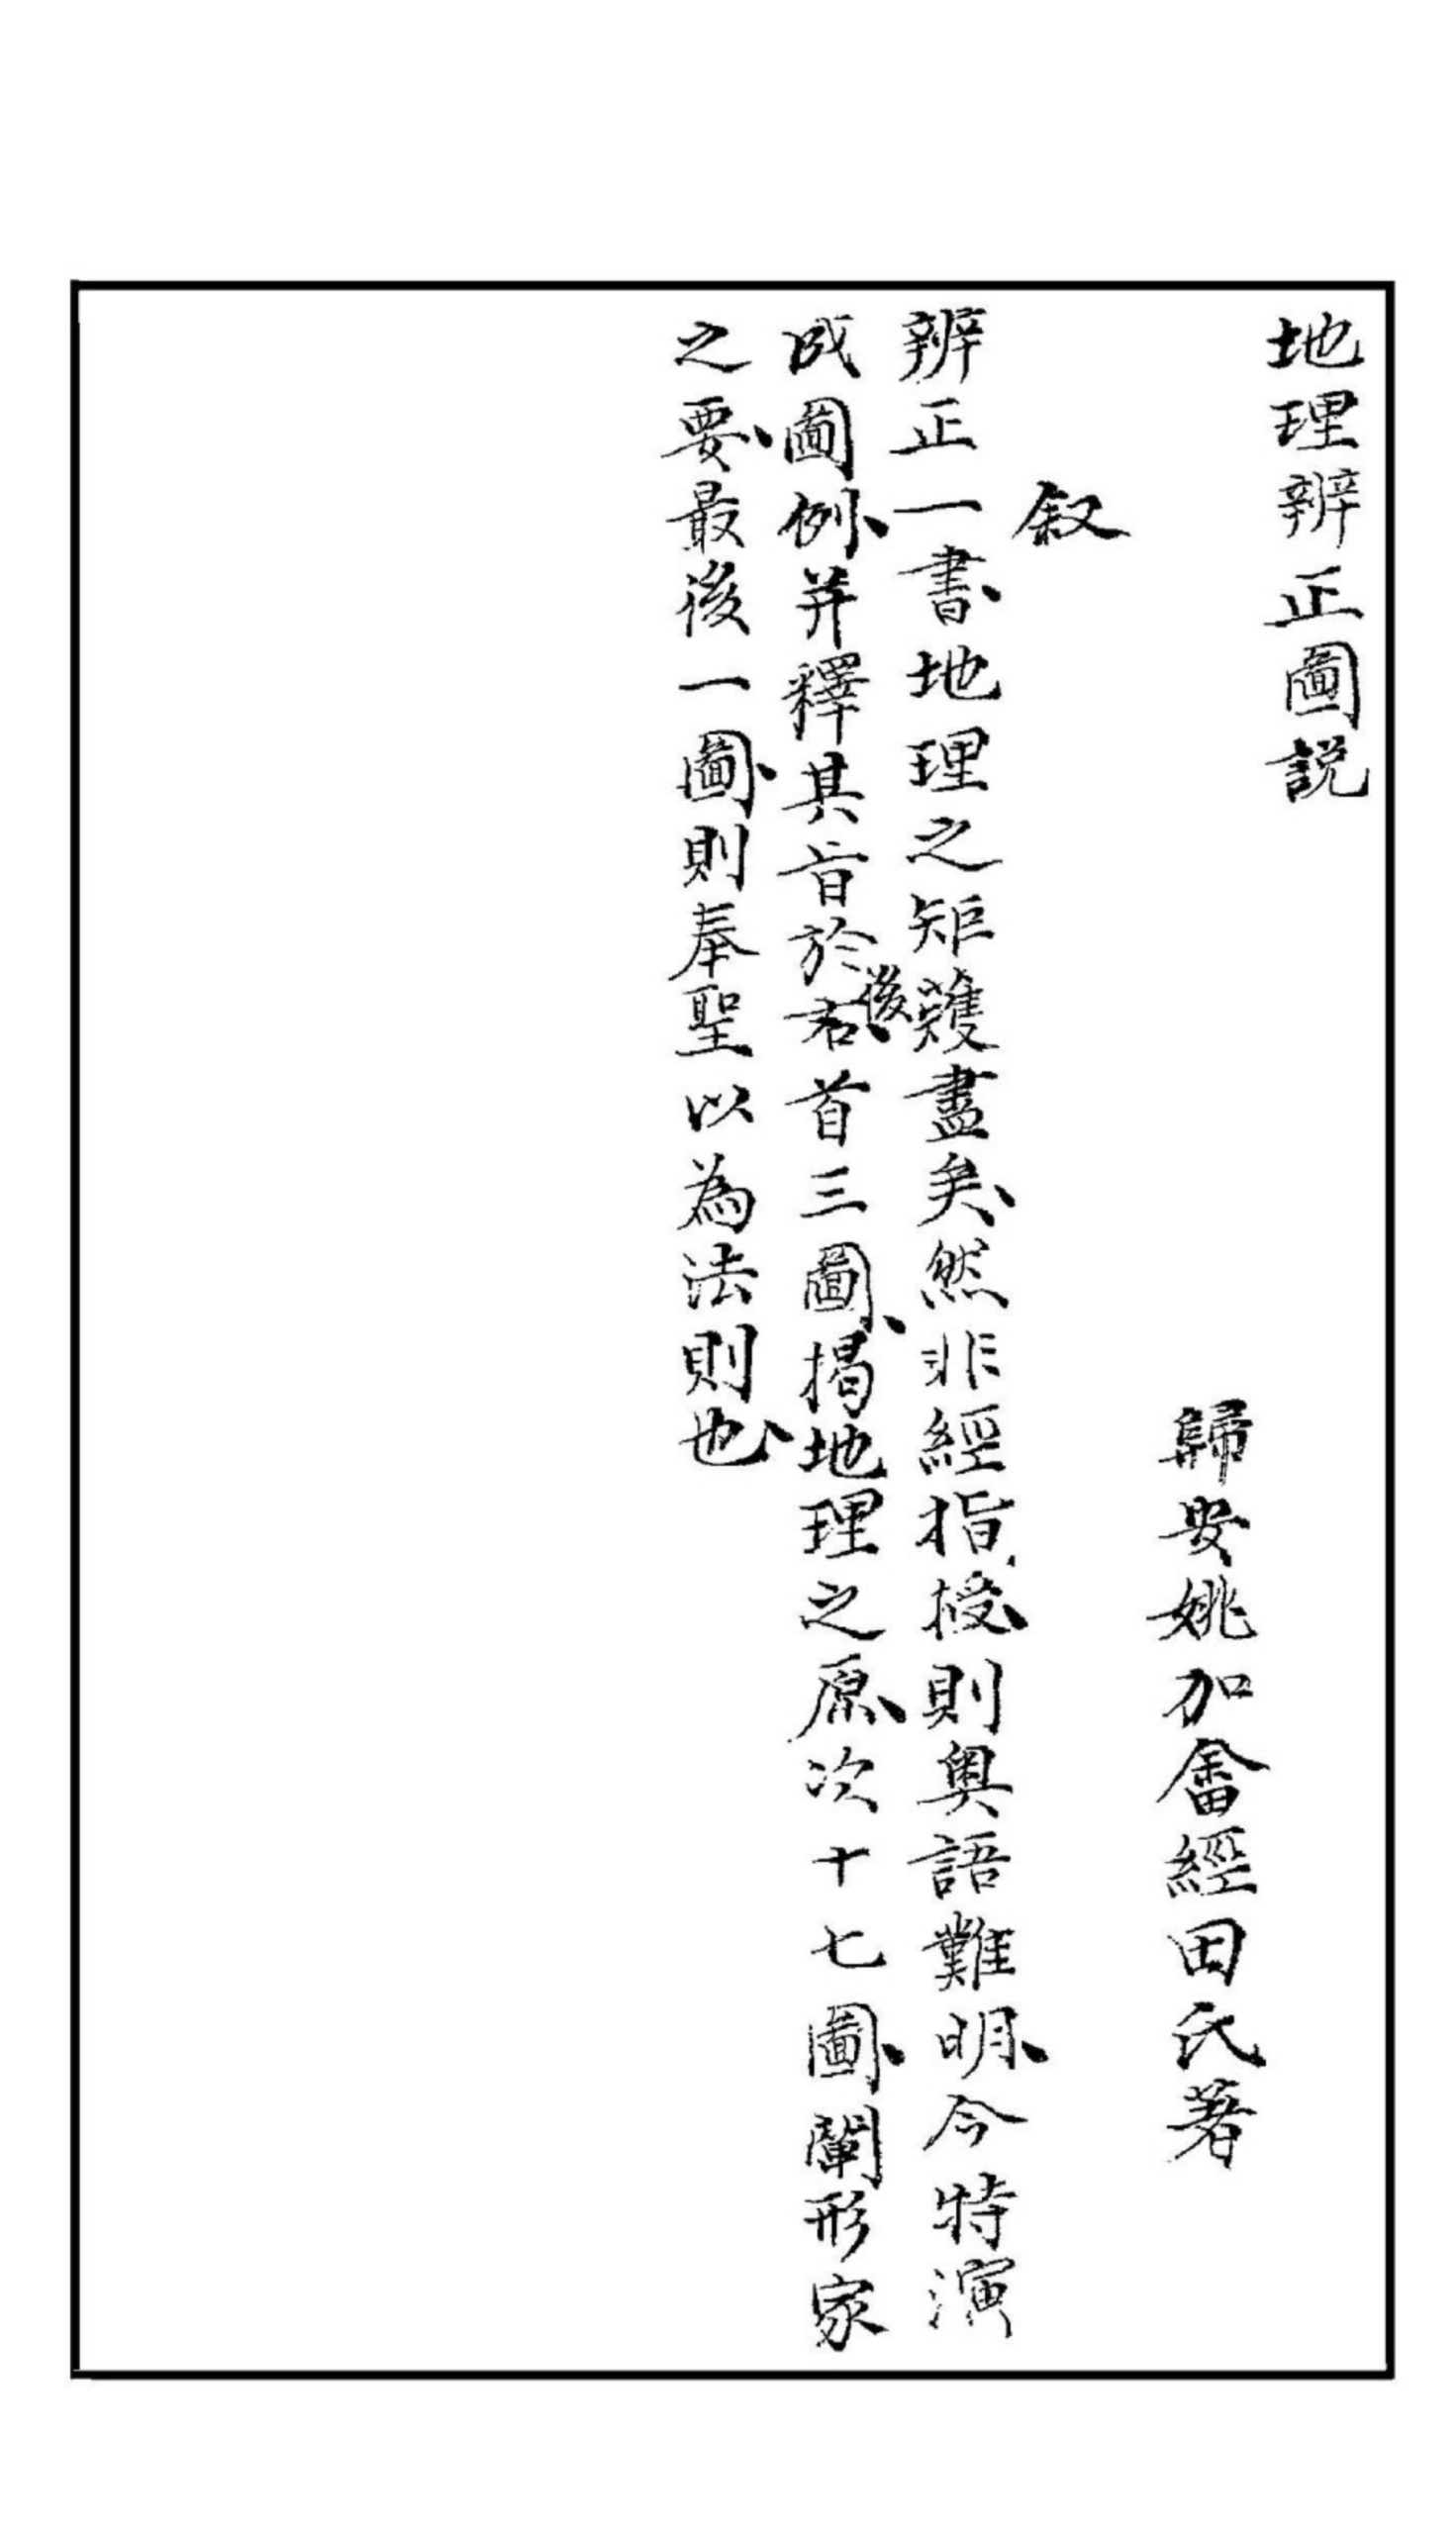 地理辨正圖説
歸安姚加畬經田氏著
叙
辨正一書、地理之矩矱盡矣、然非經指授、則奧語難明、今特演
成圖例、并釋其旨於右後、首三圖、揭地理之原、次十七圖、闡形家
之要、最後一圖、則奉聖以為法則也、